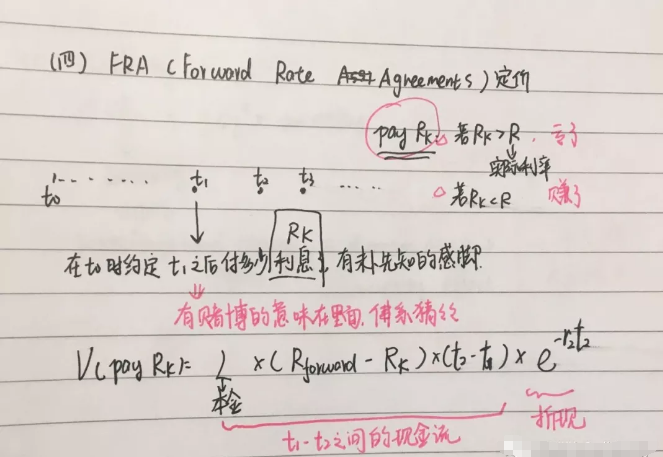 (四) FRA (Forward Rate Agreements) 定价
pay Rk: △ 若Rk>R, 亏了
实际利率
△ 若Rk<R 赚了
t0 ........ t1 t2 t3 .....
在t0时约定 t1之后付多少 利息 Rk, 有未卜先知的感脚.
有赌博的意味在里面, 佛系猜丝
V(pay Rk)= 1 ×(Rforward - Rk)×(t2-t1)× e^-r2t2
本金
t1-t2之间的现金流
折现